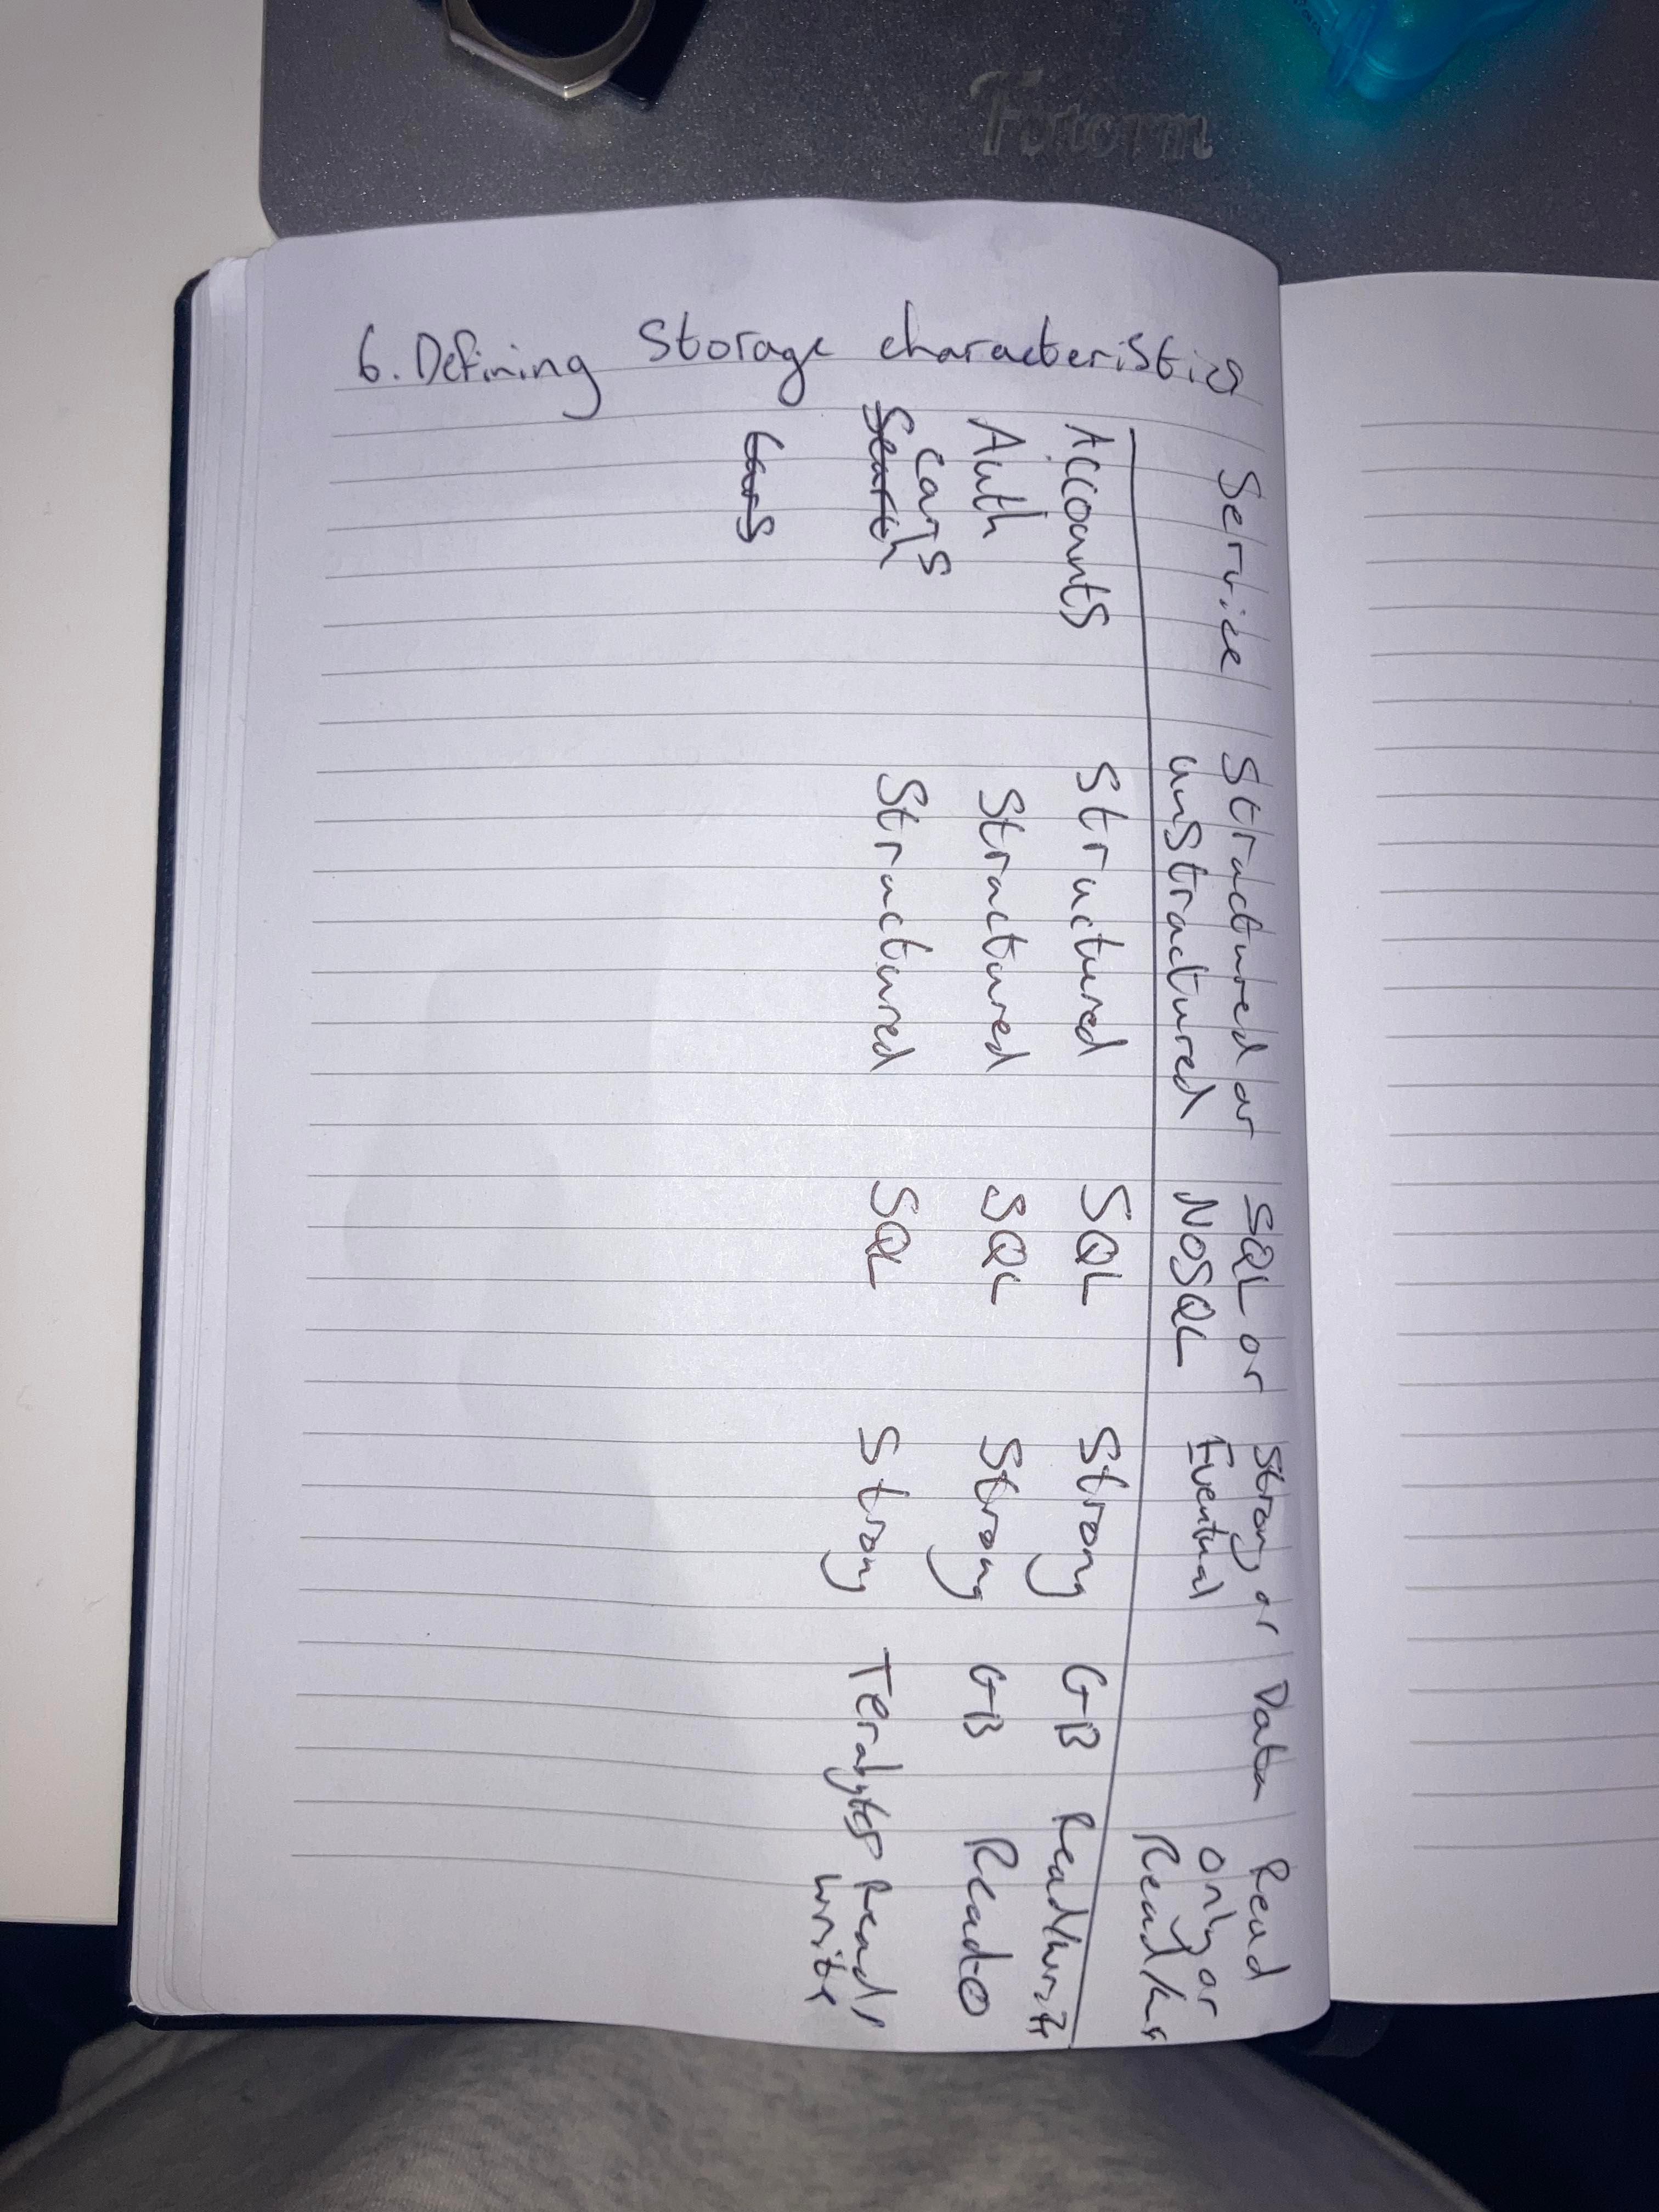 Fotorm
6. Defining Storage characteristics
Service Structured or unstructured SQL or NOSQL Strong or Eventual Data Read only or Read/Wr
Accounts Structured SQL Strong GB Read/Write
Auth Structured SQL Strong GB Read-O
Search Cars Structured SQL Strong Terabytes Read/Write
Cars